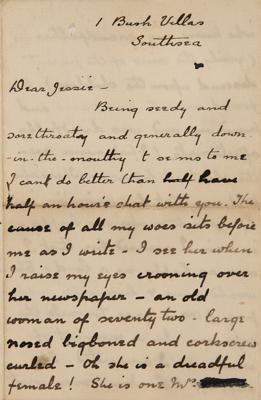 1 Bush Villas
Southsea
Dear Jessie -
Being seedy and
sorethroaty and generally down
-in-the-mouthy t seems to me
I cant do better than half have
half an hour's chat with you. The
cause of all my woes sits before
me as I write - I see her when
I raise my eyes crooning over
her newspaper - an old
woman of seventy two - large
nosed bigboned and corkscrew
curled - Oh she is a dreadful
female! She is one Mrs